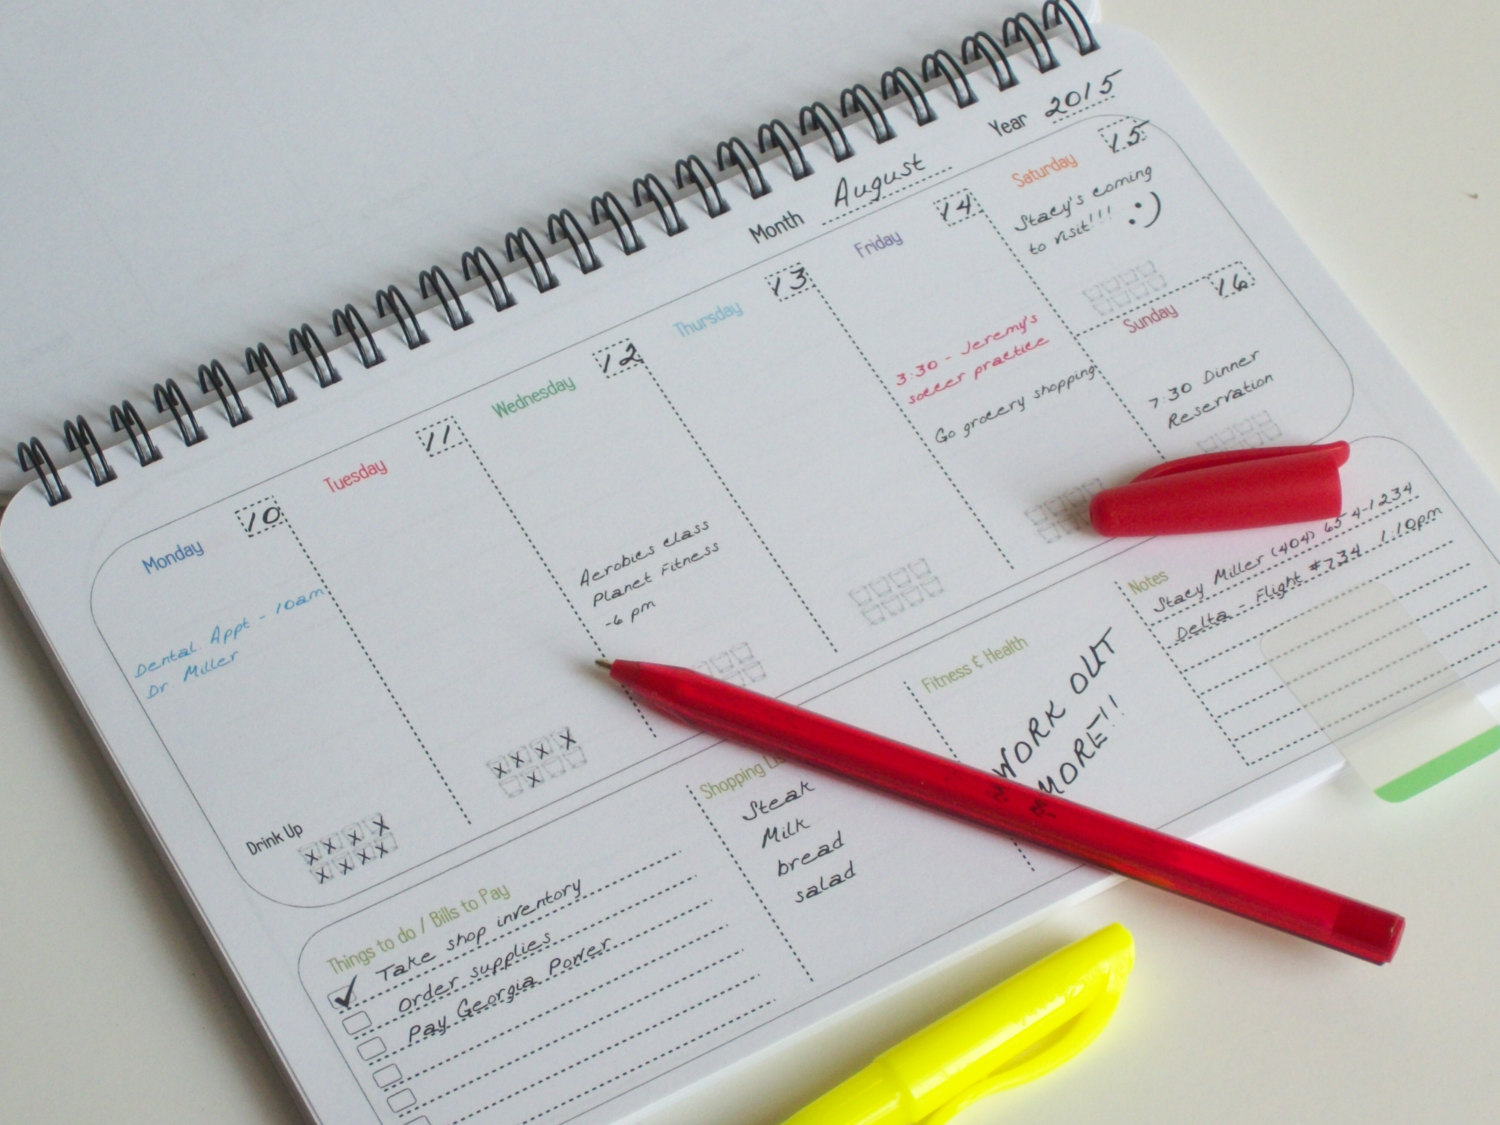 Month August
Year 2015
Monday 10
Dental Appt - 10am
Dr Miller
Drink Up
Tuesday 11
Wednesday 12
Aerobics class
Planet Fitness
-6 pm
Thursday 13
Friday 14
3:30 - Jeremy's
soccer practice
Go grocery shopping
Saturday 15
Stacy's coming
to visit!!! :)
Sunday 16
7:30 Dinner
Reservation
Things to do / Bills to Pay
Take shop inventory
order supplies
Pay Georgia Power
Shopping
Steak
Milk
bread
salad
Fitness & Health
WORK OUT
MORE!!
Notes
Stacy Miller (404) 654-1234
Delta - Flight #234 1:10pm